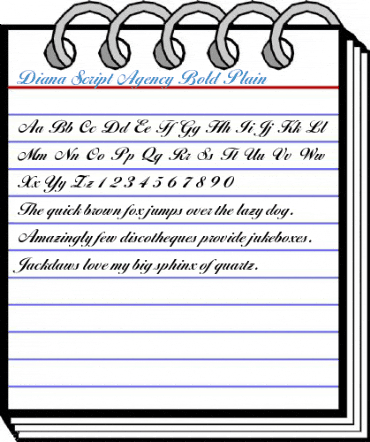 Diana Script Agency Bold Plain
Aa Bb Cc Dd Ee Ff Gg Hh Ii Jj Kk Ll
Mm Nn Oo Pp Qq Rr Ss Tt Uu Vv Ww
Xx Yy Zz 1 2 3 4 5 6 7 8 9 0
The quick brown fox jumps over the lazy dog.
Amazingly few discotheques provide jukeboxes.
Jackdaws love my big sphinx of quartz.